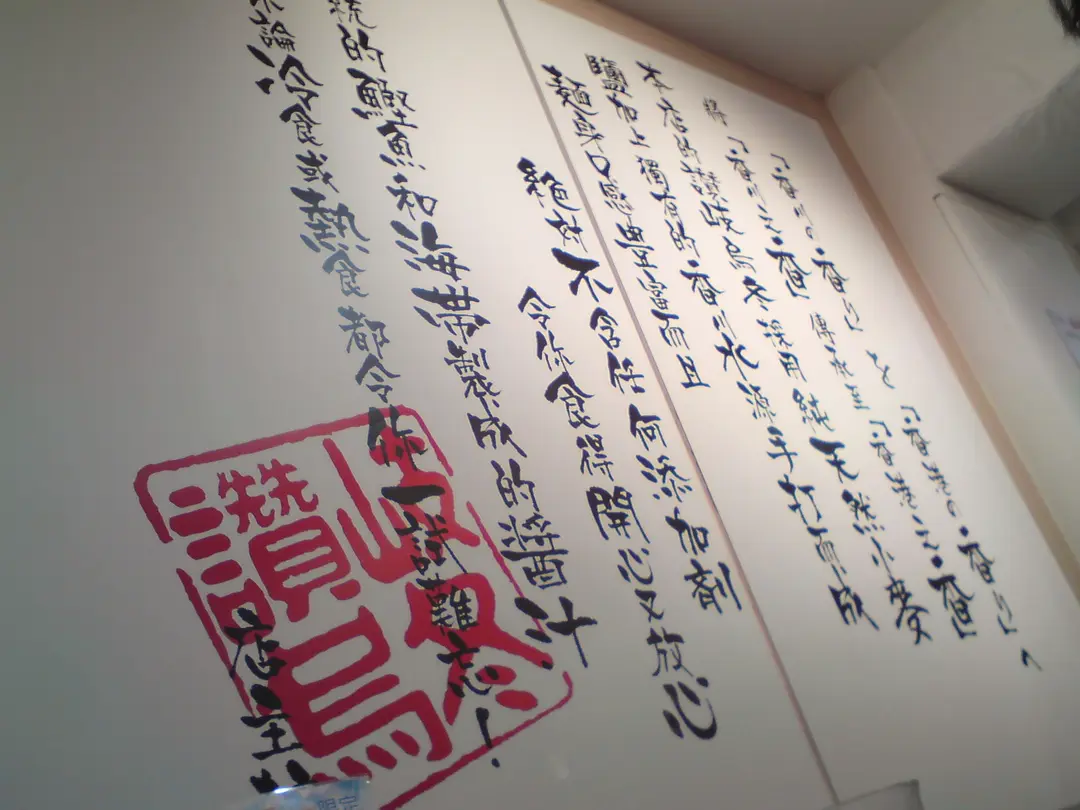 「香川の・香り」を「香港の・香り」へ
將「香川之・香」傳承至「香港之・香」
本店的讚岐烏冬採用純天然小麥
鹽加上獨有的香川水源手打而成
麵身口感豐富而且
絕對不含任何添加劑
令你食得開心又放心
統的鰹魚和海帶製成的醬汁
論冷食或熱食都令你一試難忘！
店主
讚岐烏冬
限定